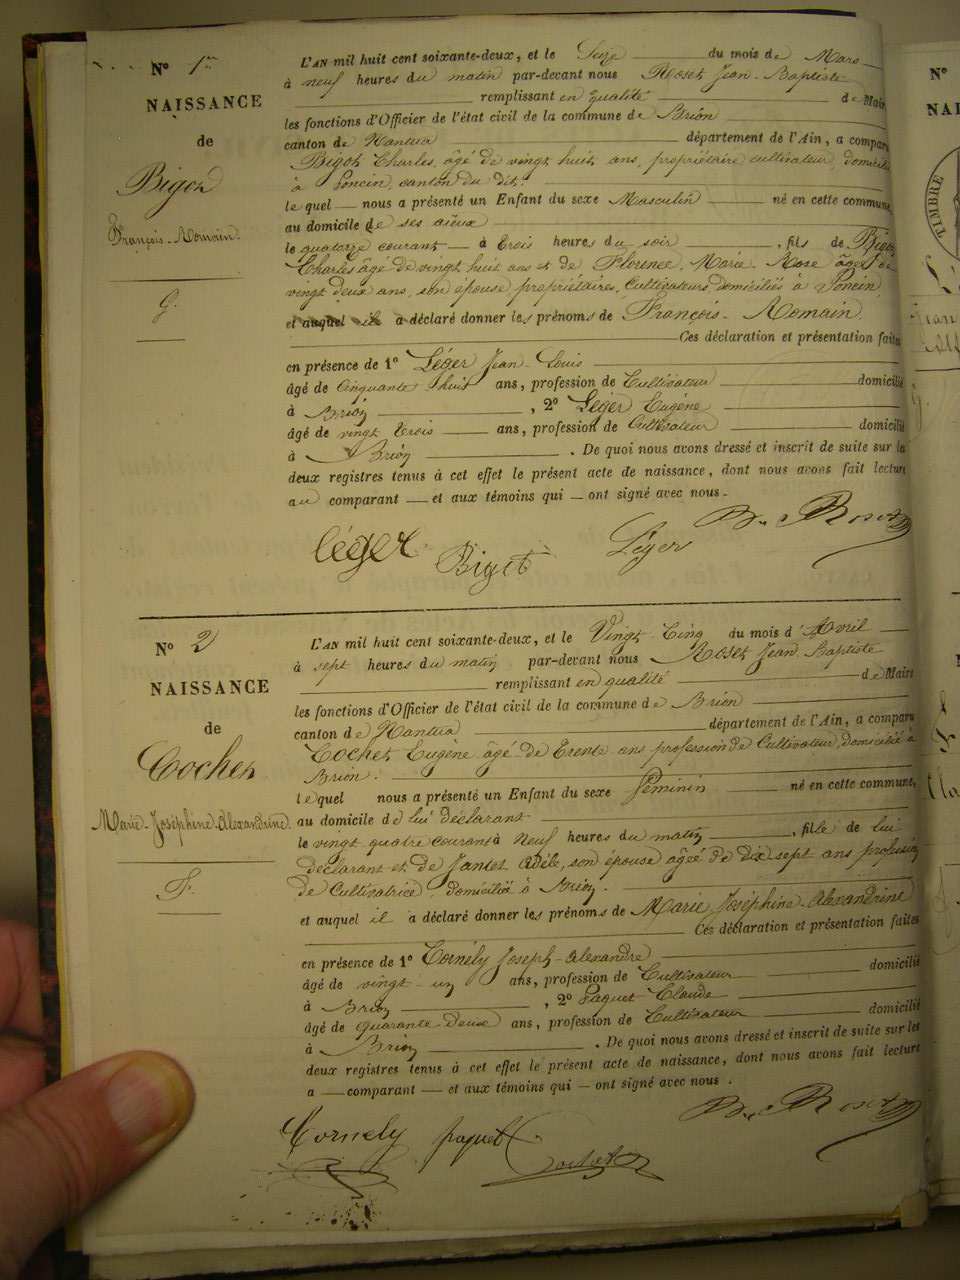 N° 1er
NAISSANCE
de
Bigot
François-Romain.
G.
L'AN mil huit cent soixante-deux, et le Seize du mois de Mars
à neuf heures du matin par-devant nous Roset Jean-Baptiste
remplissant en qualité de Maire
les fonctions d'Officier de l'état civil de la commune de Brion
canton de Nantua département de l'Ain, a comparu
Bigot Charles, âgé de vingt huit ans, propriétaire cultivateur, domicilié
à Poncin, canton du dit.
lequel nous a présenté un Enfant du sexe Masculin né en cette commune,
au domicile de ses aïeux
le quatorze courant à trois heures du soir, fils de Bigot
Charles âgé de vingt huit ans et de Florence, Marie-Rose âgée de
vingt deux ans, son épouse propriétaires, Cultivateurs domiciliés à Poncin,
et auquel il a déclaré donner les prénoms de François-Romain.
Ces déclaration et présentation faites
en présence de 1° Léger Jean-Louis
âgé de Cinquante huit ans, profession de Cultivateur domicilié
à Brion, 2° Léger Eugène
âgé de vingt trois ans, profession de Cultivateur domicilié
à Brion. De quoi nous avons dressé et inscrit de suite sur les
deux registres tenus à cet effet le présent acte de naissance, dont nous avons fait lecture
au comparant et aux témoins qui ont signé avec nous.
Bte Roset
léger Bigot Léger
N° 2
NAISSANCE
de
Cochet
Marie-Joséphine-Alexandrine.
F.
L'AN mil huit cent soixante-deux, et le Vingt-Cinq du mois d'Avril
à sept heures du matin par-devant nous Roset Jean-Baptiste
remplissant en qualité de Maire
les fonctions d'Officier de l'état civil de la commune de Brion
canton de Nantua département de l'Ain, a comparu
Cochet Eugène âgé de trente ans profession de Cultivateur, domicilié à
Brion.
lequel nous a présenté un Enfant du sexe Féminin né en cette commune,
au domicile de lui déclarant
le vingt quatre courant à Neuf heures du matin, fille de lui
déclarant et de Jantet Adèle, son épouse âgée de dix sept ans profession
de Cultivatrice, domiciliée à Brion.
et auquel il a déclaré donner les prénoms de Marie Joséphine-Alexandrine
Ces déclaration et présentation faites
en présence de 1° Cornély Joseph-Alexandre
âgé de vingt-un ans, profession de Cultivateur domicilié
à Brion, 2° Paquet-Claude
âgé de quarante-deux ans, profession de Cultivateur domicilié
à Brion. De quoi nous avons dressé et inscrit de suite sur les
deux registres tenus à cet effet le présent acte de naissance, dont nous avons fait lecture
a comparant et aux témoins qui ont signé avec nous.
Bte Roset
Cornely paquet C.
Cochet
N°
TIMBRE
Jean